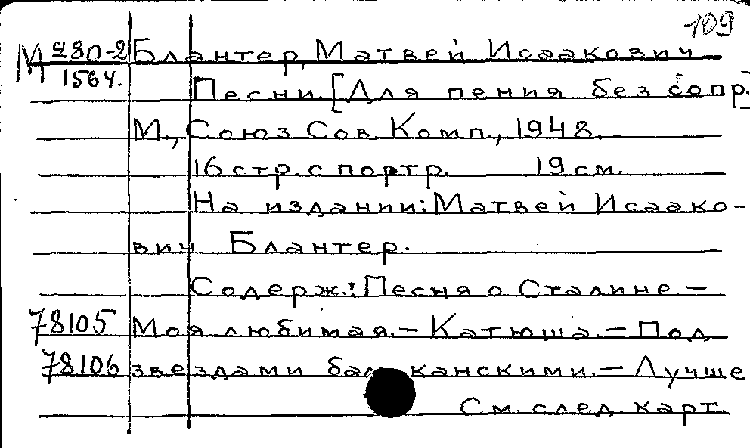 109
М 280-2 Блантер, Матвей Исаакович
1564. Песни. [Для пения без сопр.]
М., Союз Сов. Комп., 1948.
16 стр. с портр. 19 см.
На издании: Матвей Исаако-
вич Блантер.
Содерж.: Песня о Сталине –
78105 Моя любимая. – Катюша. – Под
78106 звездами балканскими. – Лучше
См. след. карт.